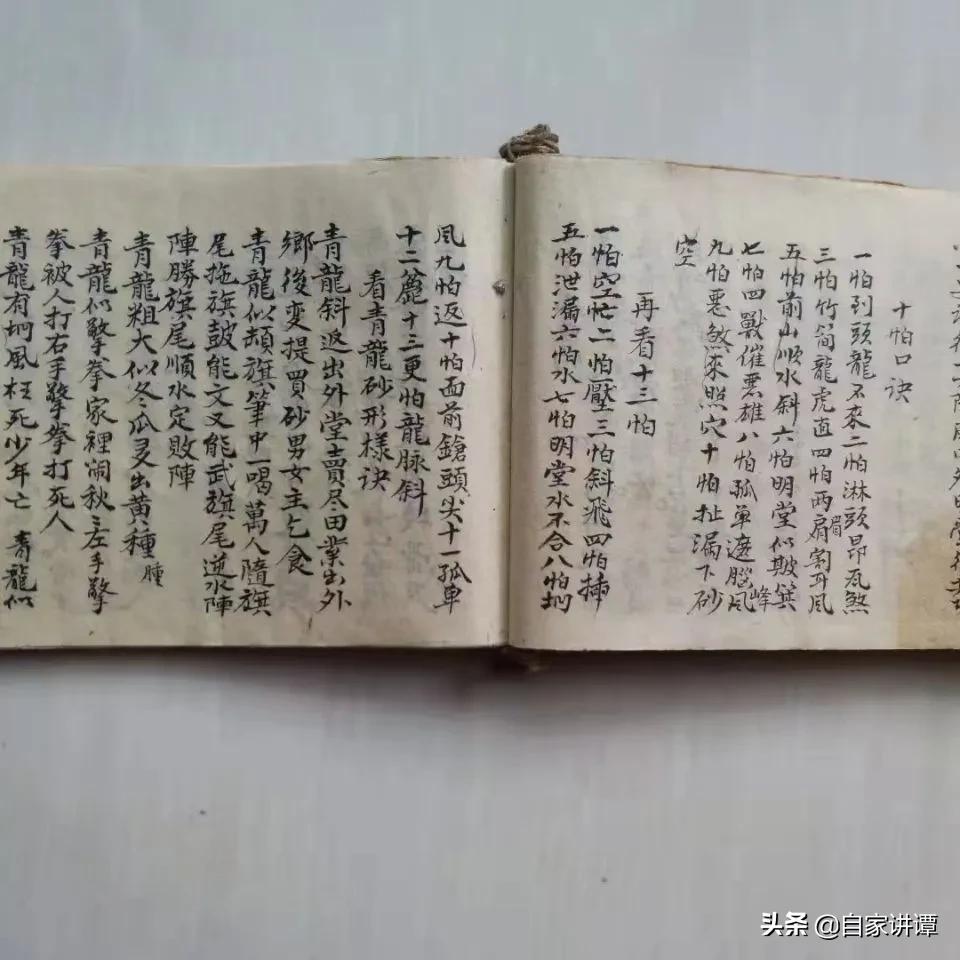 十怕口诀
一怕到頭龍不來二怕淋頭昂瓦煞
三怕竹筒龍虎直四怕两肩割耳風
眉
五怕前山順水斜六怕明堂似簸箕
七怕四獸催悪雄八怕孤单遮腦風
峰
九怕悪煞來照穴十怕扯漏下砂
空
再看十三怕
一怕空茫二怕壓三怕斜飛四怕挿
五怕泄漏六怕水七怕明堂水不合八怕坳
風九怕返十怕面前鎗頭尖十一孤单
十二麄十三更怕龍脉斜
看青龍砂形樣诀
青龍斜返出外堂賣尽田業出外
鄉後变提買砂男女主乞食
青龍似頓旗筆中一喝萬人隨旗
尾拖旗鼓能文又能武旗尾逆水陣
陣勝旗尾順水定敗陣
青龍粗大似冬瓜灵出黄種
腫
青龍似擎拳家裡闹秋〻左手擎
拳被人打右手擎拳打死人
青龍有坳風枉死少年亡 青龍似
头条 @自家讲谭